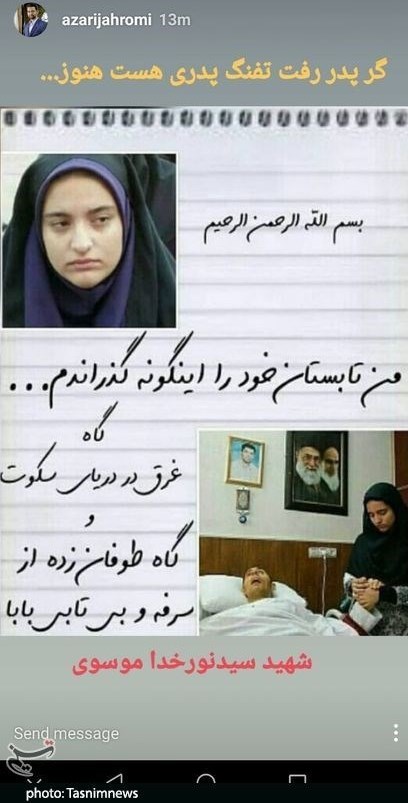 azarijahromi 13m
گر پدر رفت تفنگ پدری هست هنوز...
بسم الله الرحمن الرحیم
من تابستان خود را اینگونه گذراندم...
گاه
غرق در دریای سکوت
و
گاه طوفان زده از
سرفه و بی تابی بابا
شهید سیدنورخدا موسوی
Send message
تسنیم
photo: Tasnimnews